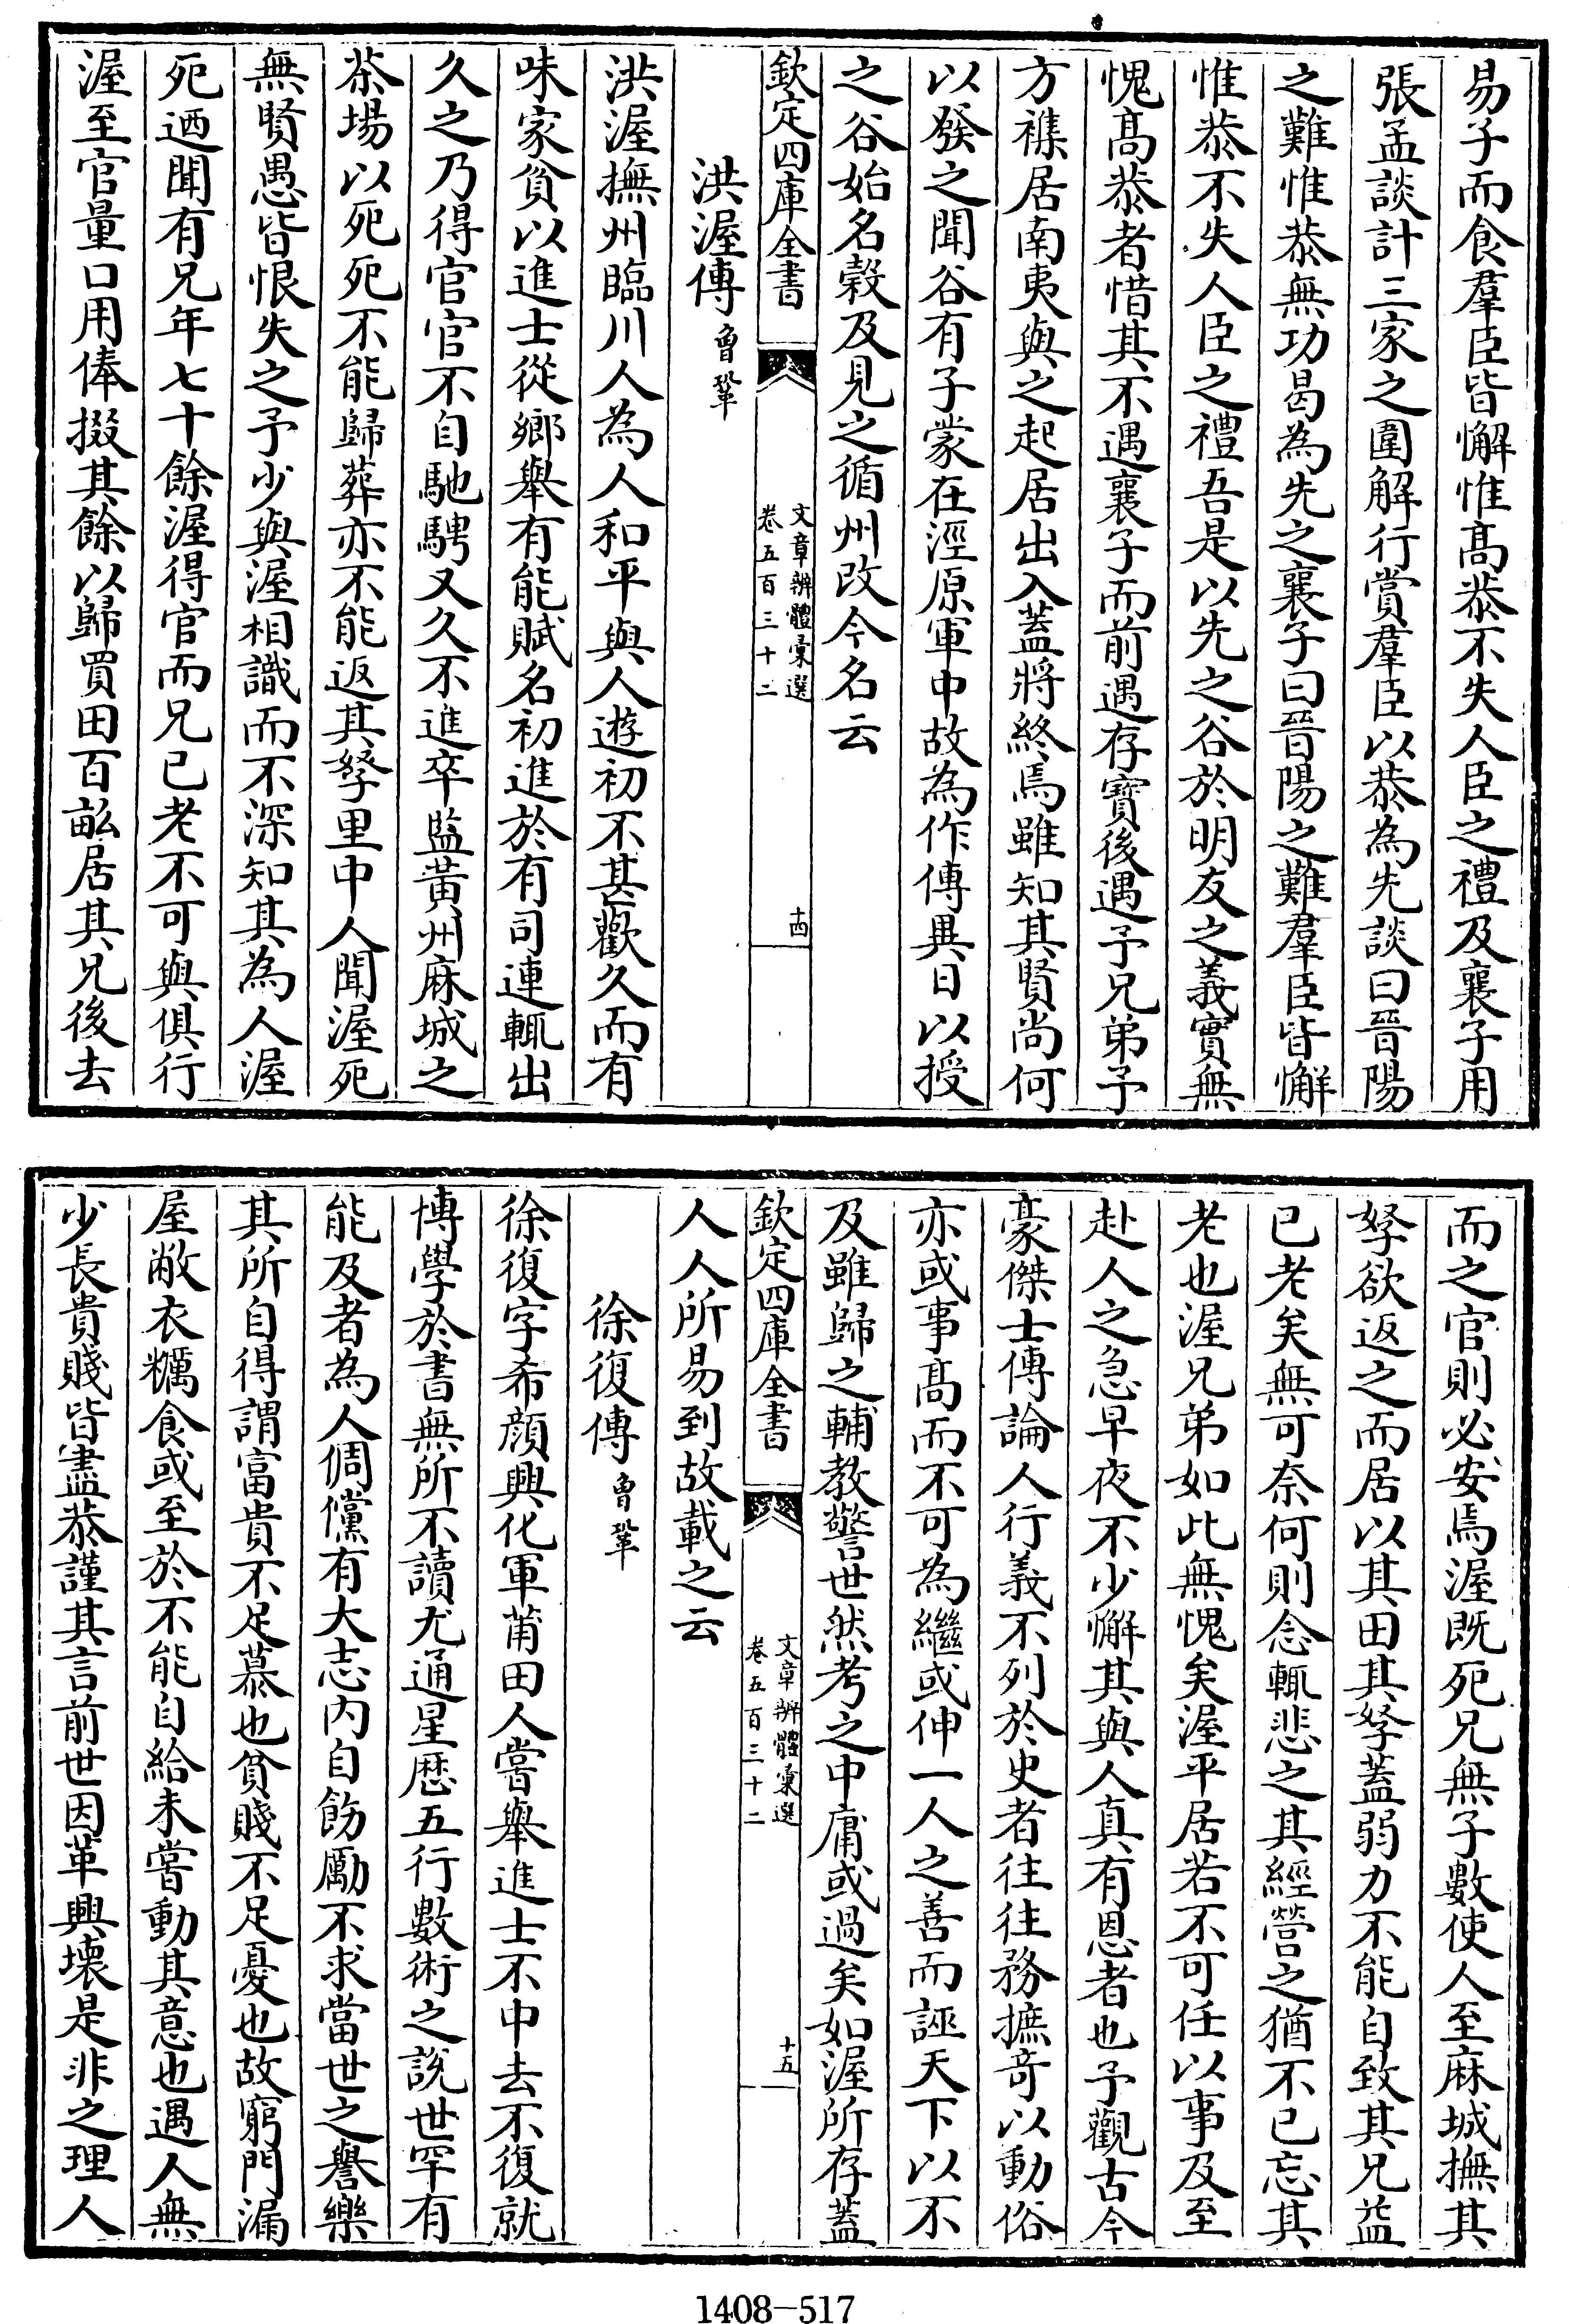 易子而食羣臣皆懈惟髙恭不失人臣之禮及襄子用
張孟談計三家之圍解行賞羣臣以恭為先談曰晉陽
之難惟恭無功曷為先之襄子曰晉陽之難羣臣皆懈
惟恭不失人臣之禮吾是以先之谷於明友之義實無
愧髙恭者惜其不遇襄子而前遇存寶後遇予兄弟予
方襍居南夷與之起居出入蓋將終焉雖知其賢尚何
以發之聞谷有子蒙在涇原軍中故為作傳異日以授
之谷始名榖及見之循州改今名云
欽定四庫全書
文章辨體彙選
卷五百三十二
十四
洪渥傳 曾鞏
洪渥撫州臨川人為人和平與人遊初不甚歡久而有
味家貧以進士從鄉舉有能賦名初進於有司連輒出
久之乃得官官不自馳騁又久不進卒監黃州麻城之
茶場以死死不能歸葬亦不能返其孥里中人聞渥死
無賢愚皆恨失之予少與渥相識而不深知其為人渥
死迺聞有兄年七十餘渥得官而兄已老不可與俱行
渥至官量口用俸掇其餘以歸買田百畝居其兄後去
而之官則必安焉渥既死兄無子數使人至麻城撫其
孥欲返之而居以其田其孥蓋弱力不能自致其兄益
已老矣無可奈何則念輒悲之其經營之猶不已忘其
老也渥兄弟如此無愧矣渥平居若不可任以事及至
赴人之急早夜不少懈其與人真有恩者也予觀古今
豪傑士傳論人行義不列於史者往往務摭奇以動俗
亦或事髙而不可為繼或伸一人之善而誣天下以不
及雖歸之輔教警世然考之中庸或過矣如渥所存蓋
欽定四庫全書
文章辨體彙選
卷五百三十二
十五
人人所易到故載之云
徐復傳 曾鞏
徐復字希顔興化軍莆田人嘗舉進士不中去不復就
博學於書無所不讀尤通星歴五行數術之說世罕有
能及者為人倜儻有大志内自飭勵不求當世之譽樂
其所自得謂富貴不足慕也貧賤不足憂也故窮門漏
屋敝衣糲食或至於不能自給未嘗動其意也遇人無
少長貴賤皆盡恭謹其言前世因革興壊是非之理人
1408—517